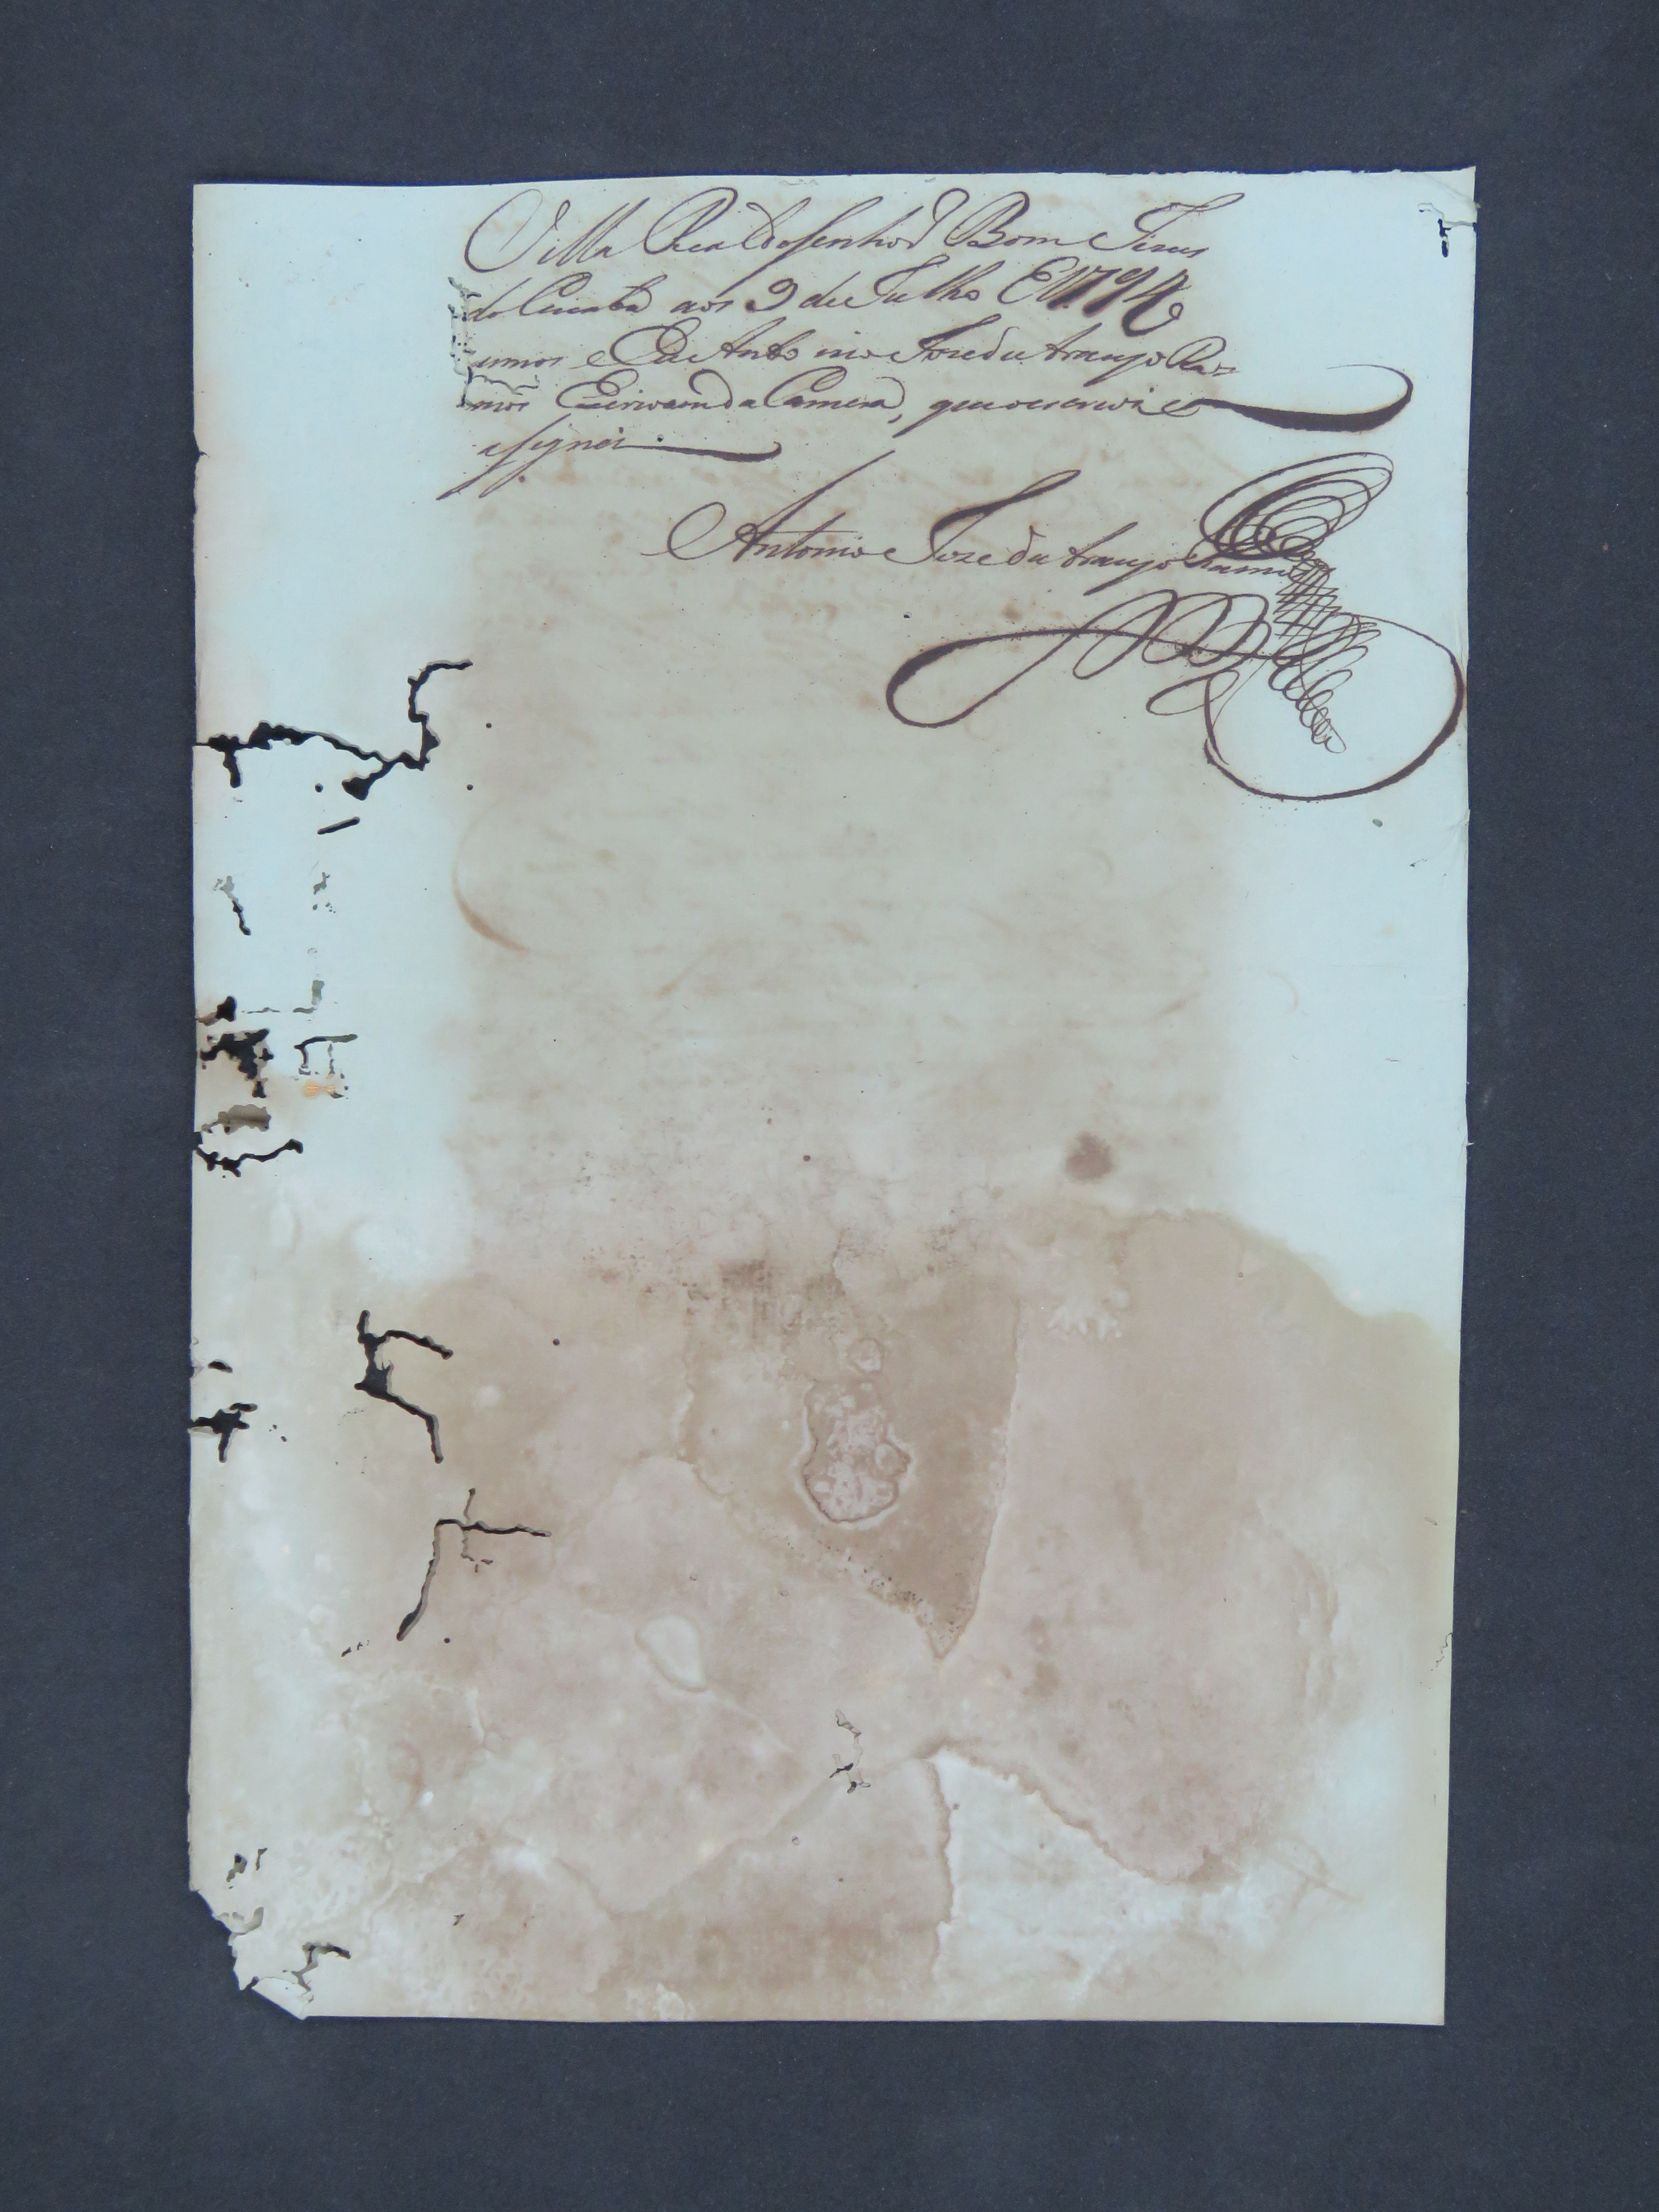 Villa Real do Senhor Bom Jesus
do Cuiabá aos 9 de Julho 1794
annos e Eu Antonio Jose de Araujo Ra=
mos Escrivam da Camera, que o escrevi e
assignei.
Antonio Joze de Araujo Ramos